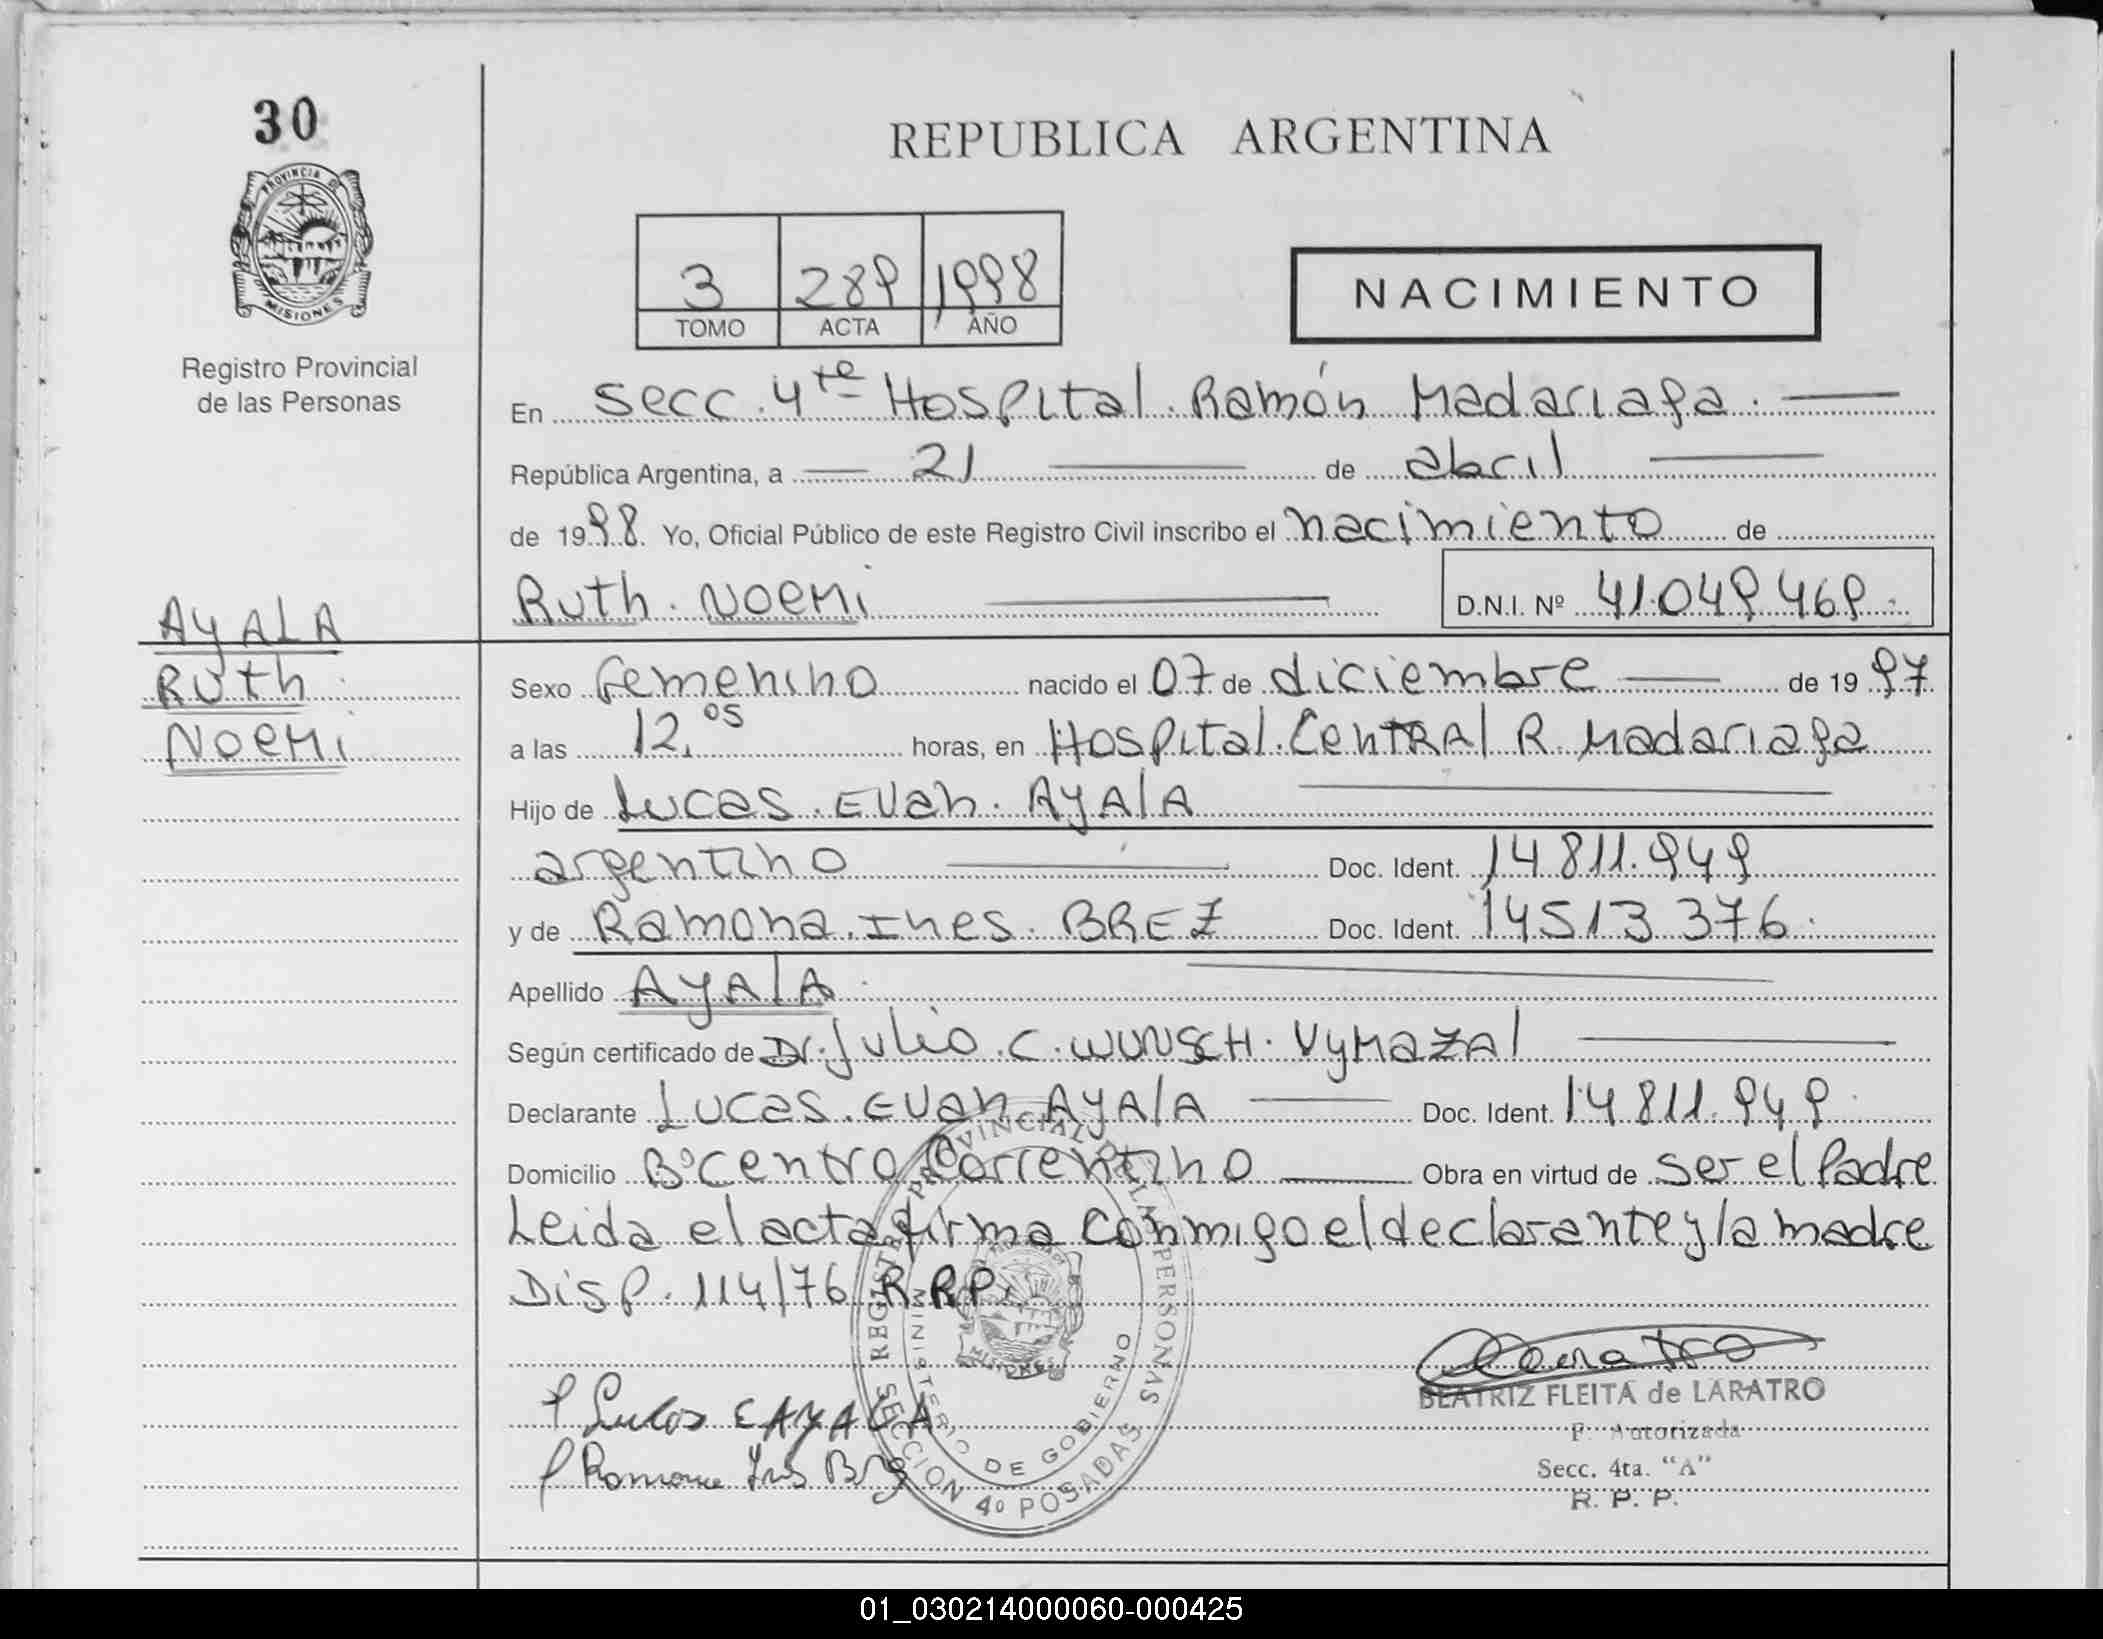 30
PROVINCIA DE
MISIONES
Registro Provincial
de las Personas
REPUBLICA ARGENTINA
3 289 1998
TOMO ACTA AÑO
NACIMIENTO
En Secc. 4te Hospital Ramón Madariaga.
República Argentina, a 21 de abril
de 1998. Yo, Oficial Público de este Registro Civil inscribo el nacimiento de
Ruth Noemi D.N.I. Nº 41.049 469
AYALA
Ruth
Noemi
Sexo femenino nacido el 07 de diciembre de 1997
a las 12,05 horas, en Hospital Central R. Madariaga
Hijo de Lucas Evan AYALA
argentino Doc. Ident. 14 811.949
y de Ramona Ines BREZ Doc. Ident. 14513 376
Apellido AYALA
Según certificado de Dr. Julio C. WUNSCH Vymazal
Declarante Lucas Evan AYALA Doc. Ident. 14 811.949
Domicilio Bº Centro Correntino Obra en virtud de Ser el Padre
Leida el acta firma conmigo el declarante y la madre
Disp. 114/76 R.R.P.
REGISTRO PROVINCIAL DE LAS PERSONAS
SECCION 4º POSADAS
MINISTERIO DE GOBIERNO
MISIONES
Lucas E AYALA
Ramona Ines
BEATRIZ FLEITA de LARATRO
F. Autorizada
Secc. 4ta. "A"
R. P. P.
01_030214000060-000425